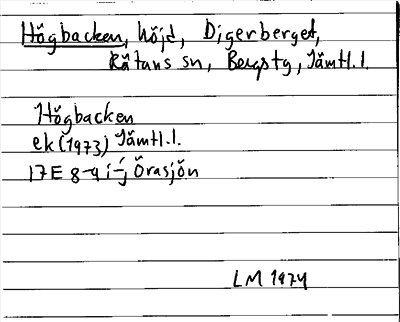 Högbacken, höjd, Digerberget,
Rätans sn, Bergs tg, Jämtl.l.
Högbacken
ek (1973) Jämtl.l.
17E 8-9 i-j Örasjön
LM 1974